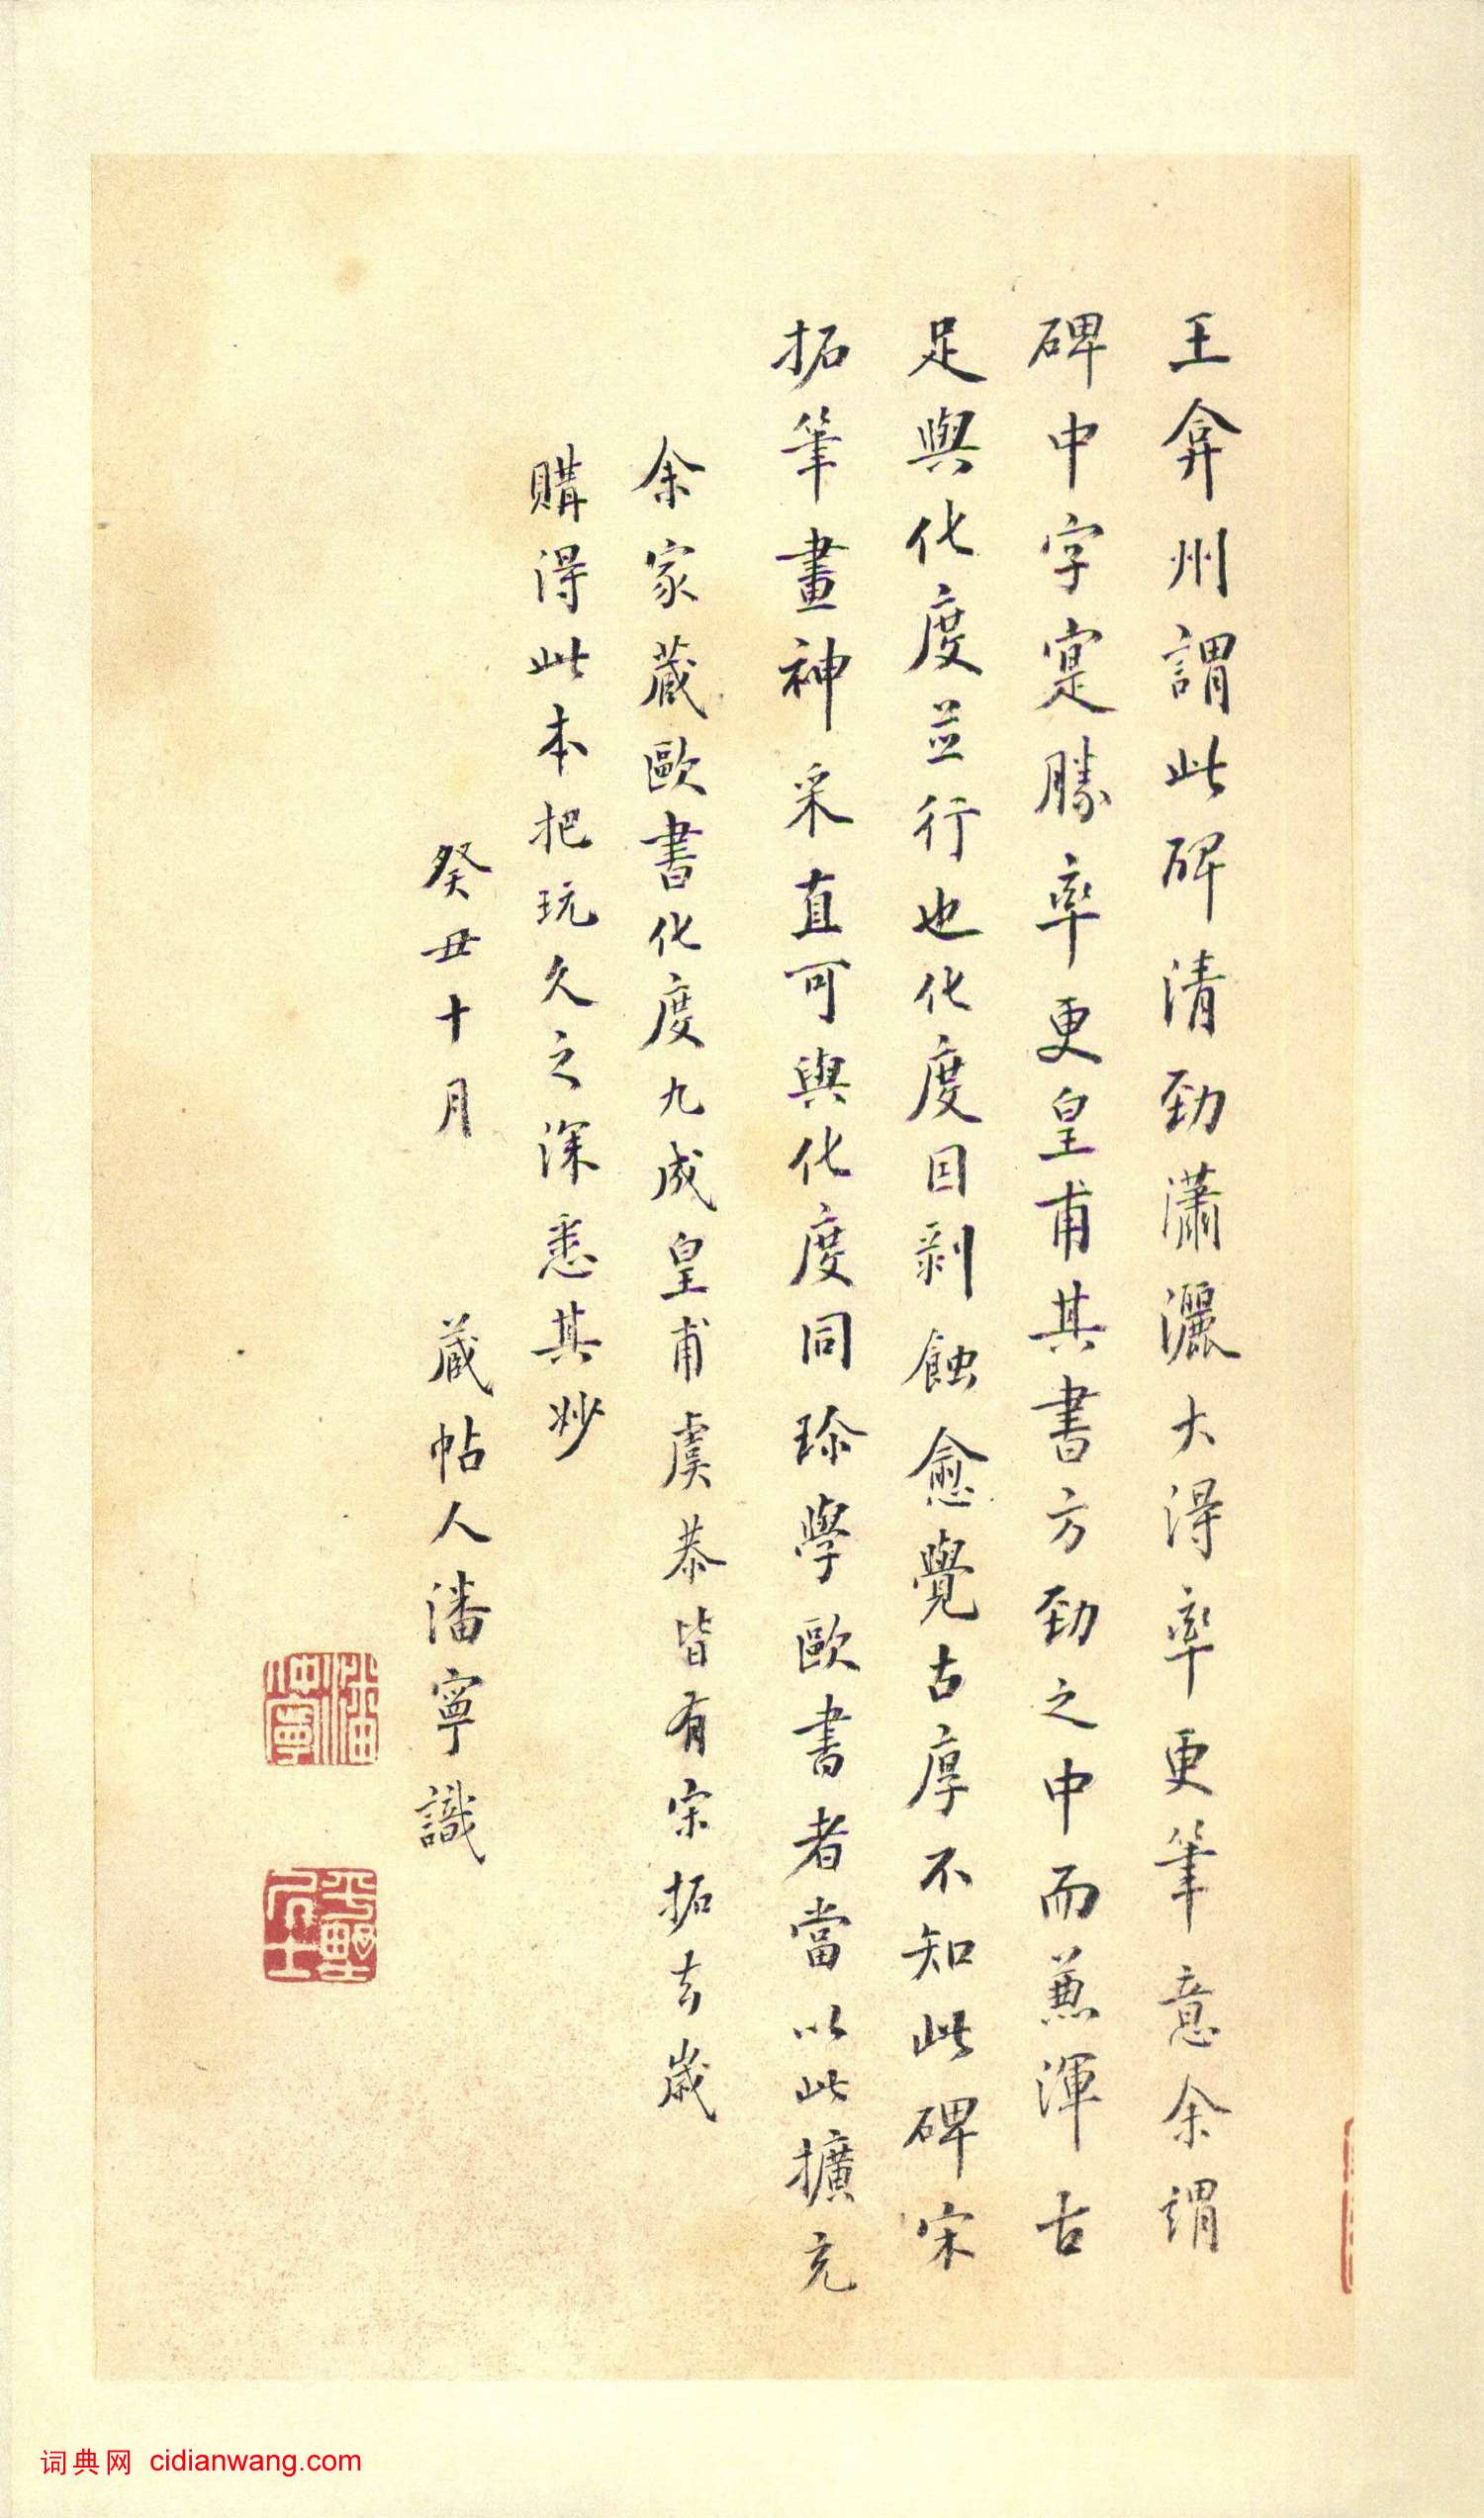 王弇州謂此碑清勁瀟灑大得率更筆意余謂
碑中字寔勝率更皇甫其書方勁之中而兼渾古
足與化度並行也化度因剥蝕愈覺古厚不知此碑宋
拓筆畫神采直可與化度同珍學歐書者當以此擴充
余家藏歐書化度九成皇甫虞恭皆有宋拓去歲
購得此本把玩久之深悉其妙
癸丑十月 藏帖人潘寧識
潘寧
平野居士
词典网 cidianwang.com